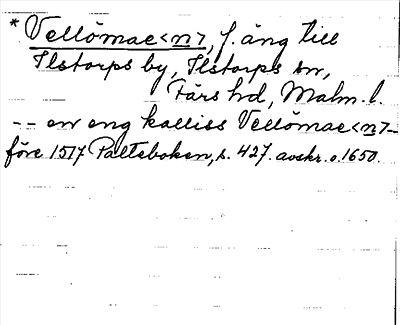 * Vellömae<n>, f. äng till
Ilstorps by, Ilstorps sn,
Färs hd, Malm. l.
-- en eng kalliss Vellömae<n>-
före 1517 Palteboken, s. 427. avskr. o. 1650.